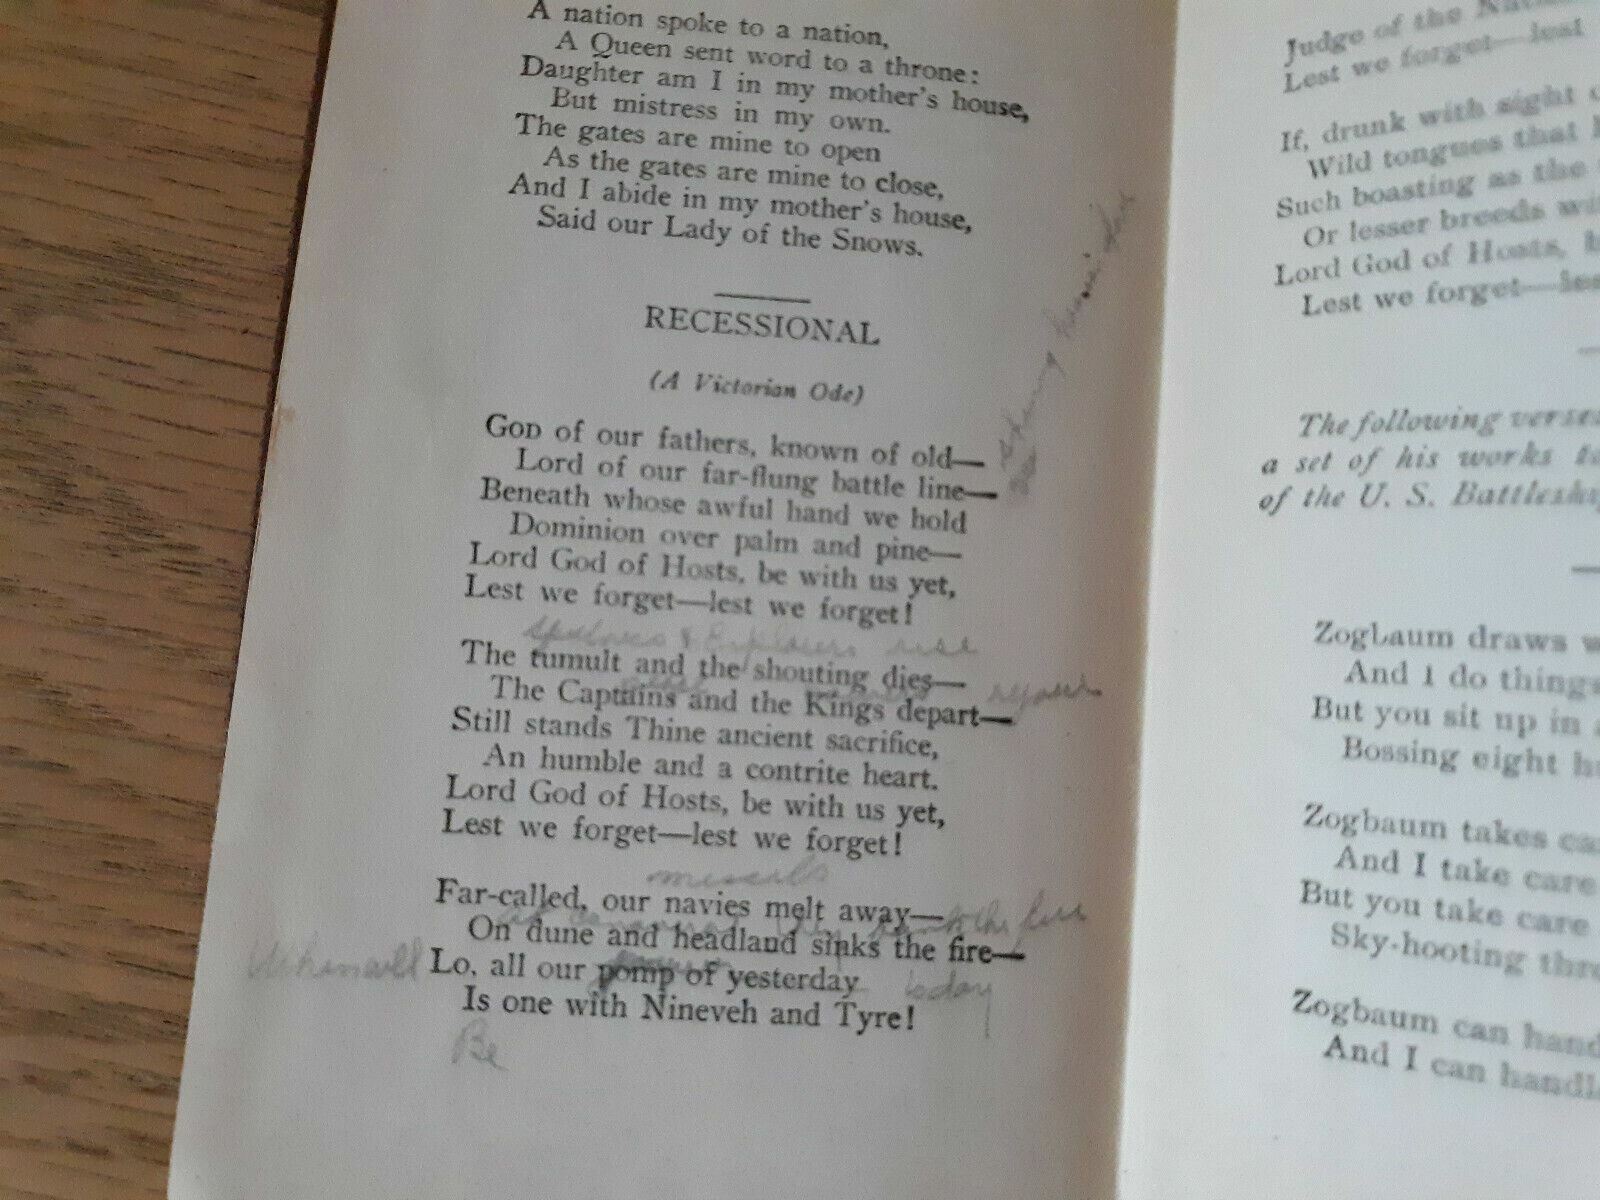 A nation spoke to a nation,
A Queen sent word to a throne:
Daughter am I in my mother's house,
But mistress in my own.
The gates are mine to open
As the gates are mine to close,
And I abide in my mother's house,
Said our Lady of the Snows.
RECESSIONAL
(A Victorian Ode)
GOD of our fathers, known of old—
Lord of our far-flung battle line—
Beneath whose awful hand we hold
Dominion over palm and pine—
Lord God of Hosts, be with us yet,
Lest we forget—lest we forget!
rise
The tumult and the shouting dies—
The Captains and the Kings depart—
Still stands Thine ancient sacrifice,
An humble and a contrite heart.
Lord God of Hosts, be with us yet,
Lest we forget—lest we forget!
missals
Far-called, our navies melt away—
On dune and headland sinks the fire—
Lo, all our pomp of yesterday
today
Is one with Nineveh and Tyre!
Be
Judge of the
Lest we forget—lest
If, drunk with sight
Wild tongues that
Such boasting as the
Or lesser breeds
Lord God of Hosts,
Lest we forget
The following verses
a set of his works
of the U. S.
Zogbaum draws
And I do things
But you sit up in
Bossing eight
Zogbaum takes
And I take care
But you take care
Sky-hooting
Zogbaum can
And I can